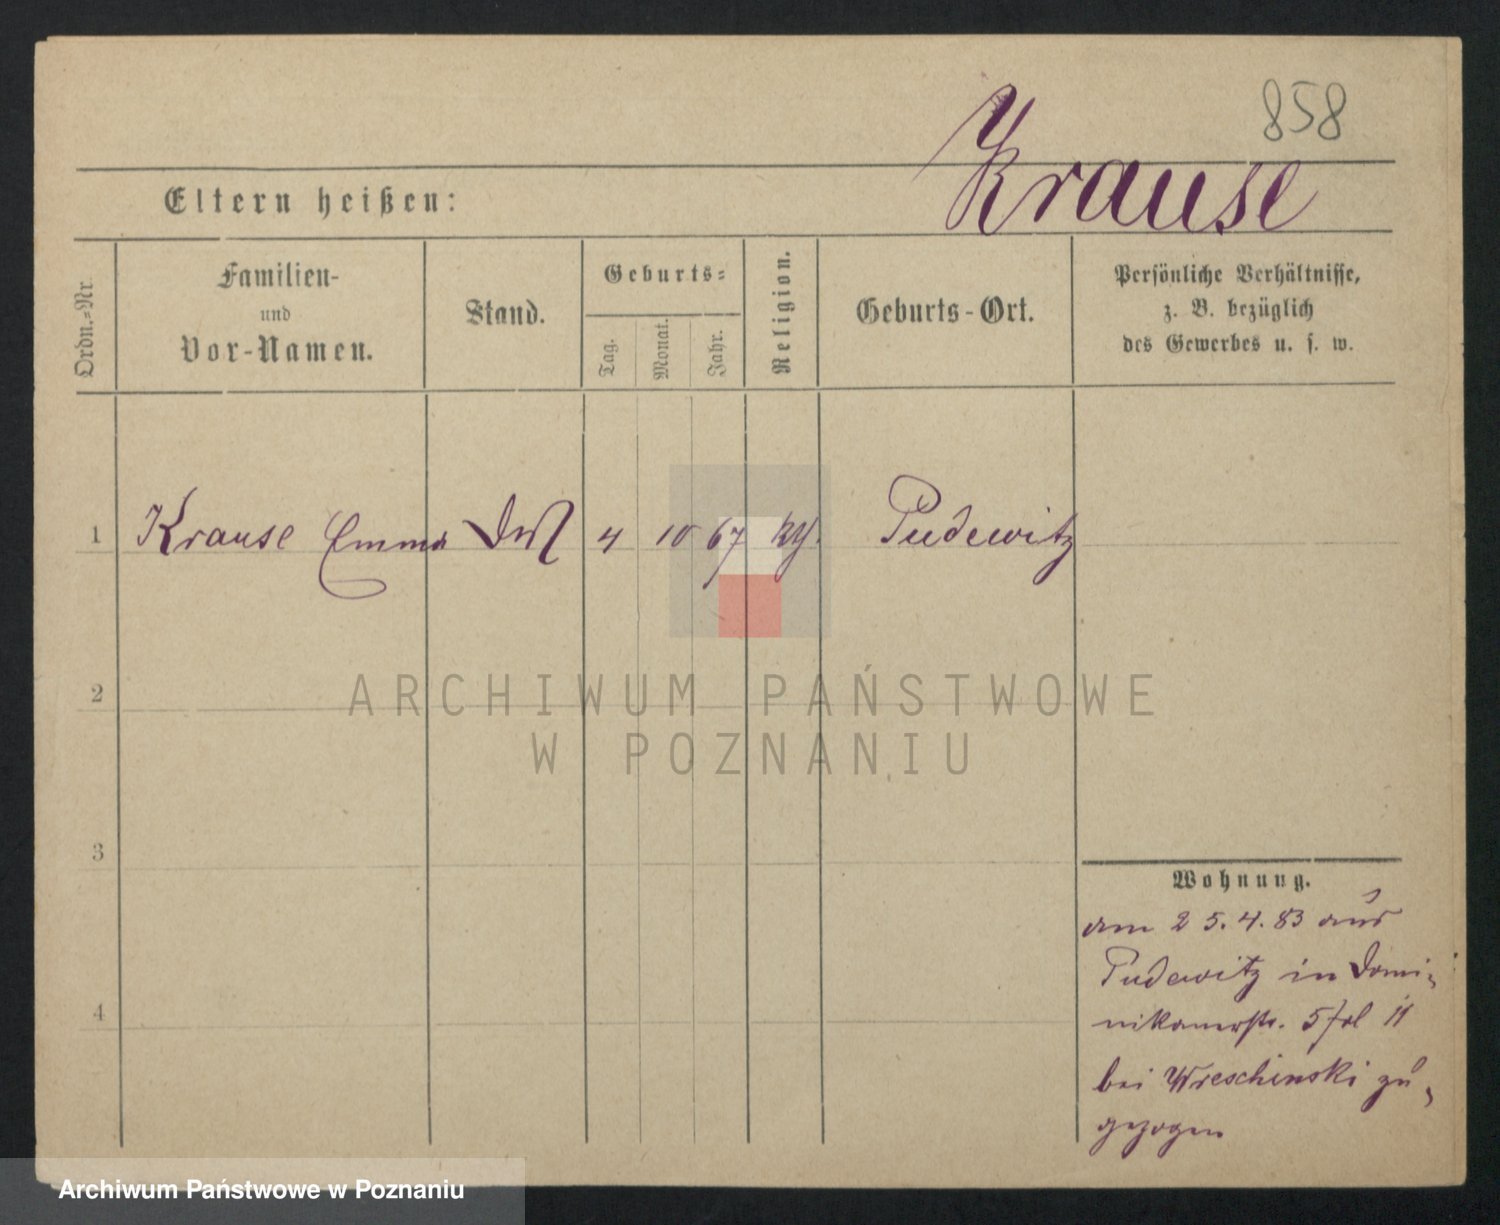 858
Krause
Eltern heißen:
Ordn.-Nr.
Familien-
und
Vor-Namen.
Stand.
Geburts-
Tag.
Monat.
Jahr.
Religion.
Geburts-Ort.
Persönliche Verhältnisse,
z. B. bezüglich
des Gewerbes u. s. w.
1 Krause Emma 4 10 67 Pudewitz
2
3
4
Wohnung.
am 25.4.83 aus
Pudewitz in Domi-
nikanerstr. 5
bei Wreschinski zu-
gezogen
ARCHIWUM PAŃSTWOWE
W POZNANIU
Archiwum Państwowe w Poznaniu